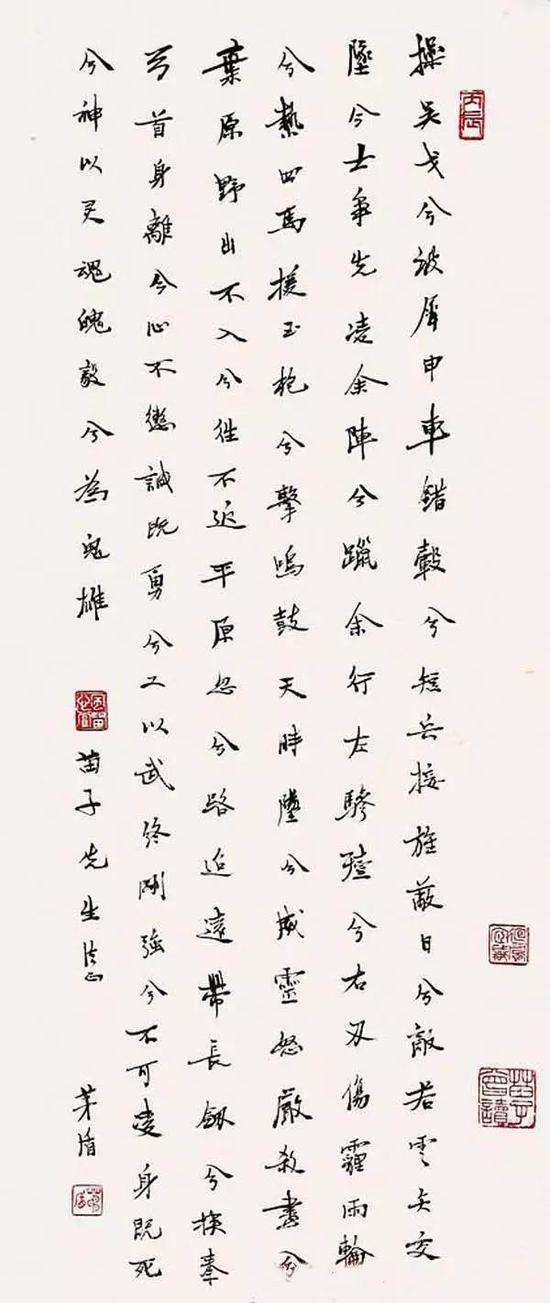 丙辰
操吴戈兮被犀甲車錯轂兮短兵接旌蔽日兮敵若雲矢交
墜兮士爭先凌余陣兮躐余行左驂殪兮右刃傷霾兩輪
兮縶四馬援玉枹兮擊鳴鼓天時墜兮威靈怒嚴殺盡兮
棄原野出不入兮往不返平原忽兮路迢遠帶長劍兮挾秦
弓首身離兮心不懲誠既勇兮又以武終剛強兮不可凌身既死
兮神以灵魂魄毅兮為鬼雄
苗子先生法正
茅盾